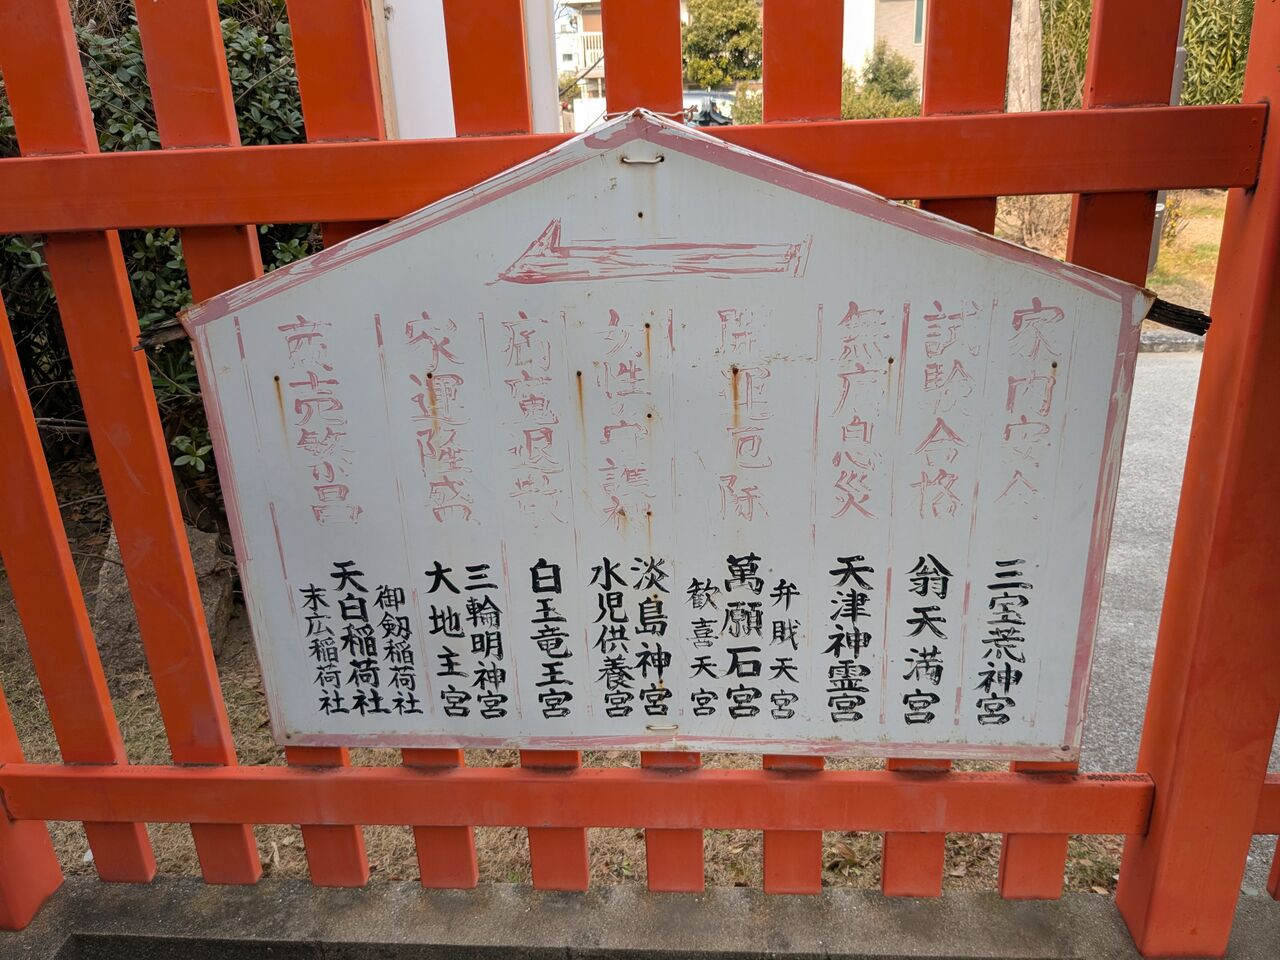 家内安全
三宝荒神宮
試験合格
翁天満宮
無病息災
天津神霊宮
開運厄除
弁財天宮
萬願石宮
歓喜天宮
女性守護神
淡島神宮
水児供養宮
病魔退散
白玉竜王宮
家運隆盛
三輪明神宮
大地主宮
商売繁昌
御剱稲荷社
天白稲荷社
末広稲荷社